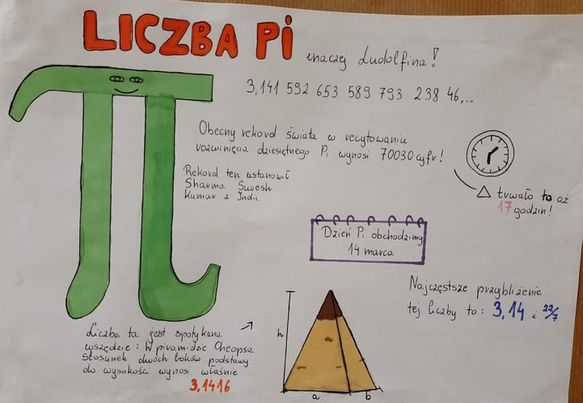 LICZBA PI inaczej Ludolfina!
3,141 592 653 589 793 238 46...
Obecny rekord świata w recytowaniu
rozwinięcia dziesiętnego Pi wynosi 70030 cyfr!
Rekord ten ustanowił
Sharma Suresh
Kumar z Indii.
trwało to aż
17 godzin!
Dzień Pi obchodzimy
14 marca
Najczęstsze przybliżenie
tej liczby to: 3,14 i 22/7
Liczba ta jest spotykana
wszędzie: W piramidzie Cheopsa
stosunek dwóch boków podstawy
do wysokości wynosi właśnie
3,1416
h
a
b